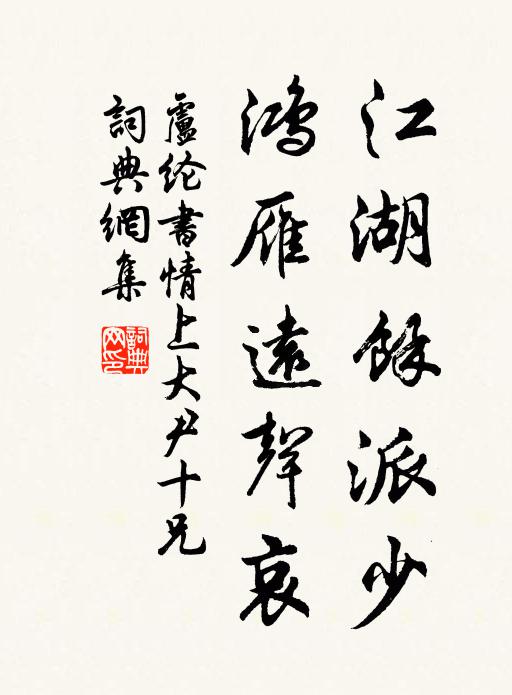 江湖餘派少
鴻雁遠聲哀
盧纶書情上大尹十兄
詞典網集
詞典网印